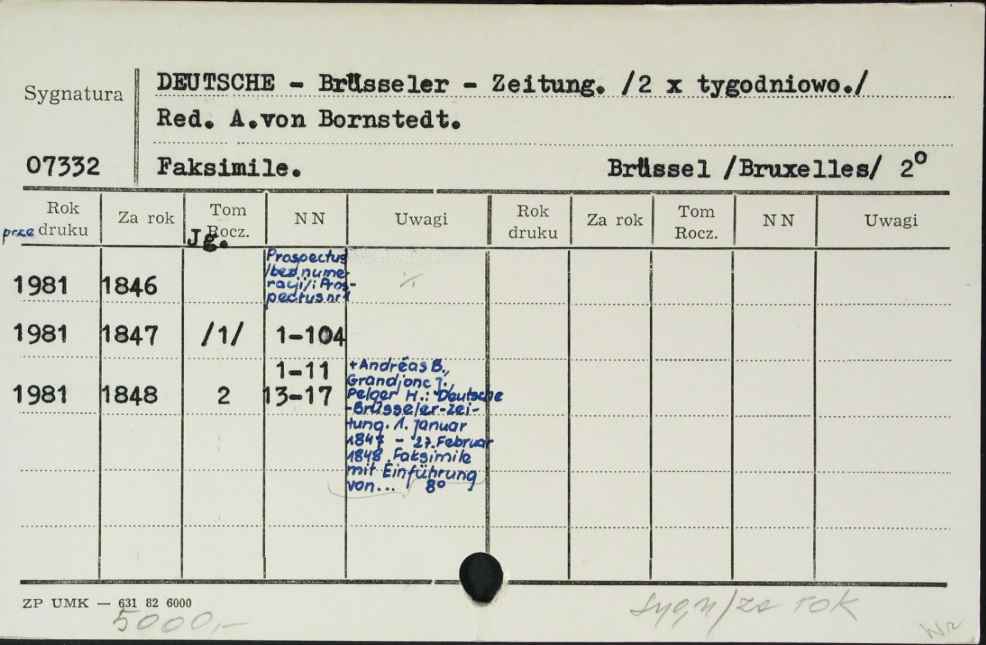 Sygnatura
DEUTSCHE - Brüsseler - Zeitung. /2 x tygodniowo./
Red. A.von Bornstedt.
07332 Faksimile. Brüssel /Bruxelles/ 2°
Rok Za rok Tom NN Uwagi Rok Za rok Tom NN Uwagi
przedruku Jg. Rocz. druku Rocz.
1981 1846 Prospectus
/bez nume-
racji/i Pros-
pectus nr 1
1981 1847 /1/ 1-104
1981 1848 2 1-11
13-17
+Andréas B.,
Grandjonc J.,
Pelger H.: Deutsche
-Brüsseler-Zei-
tung. 1. Januar
1847 - 27. Februar
1848. Faksimile
mit Einführung
von... 8°
ZP UMK — 631 82 6000
5000,-
sygn/za rok